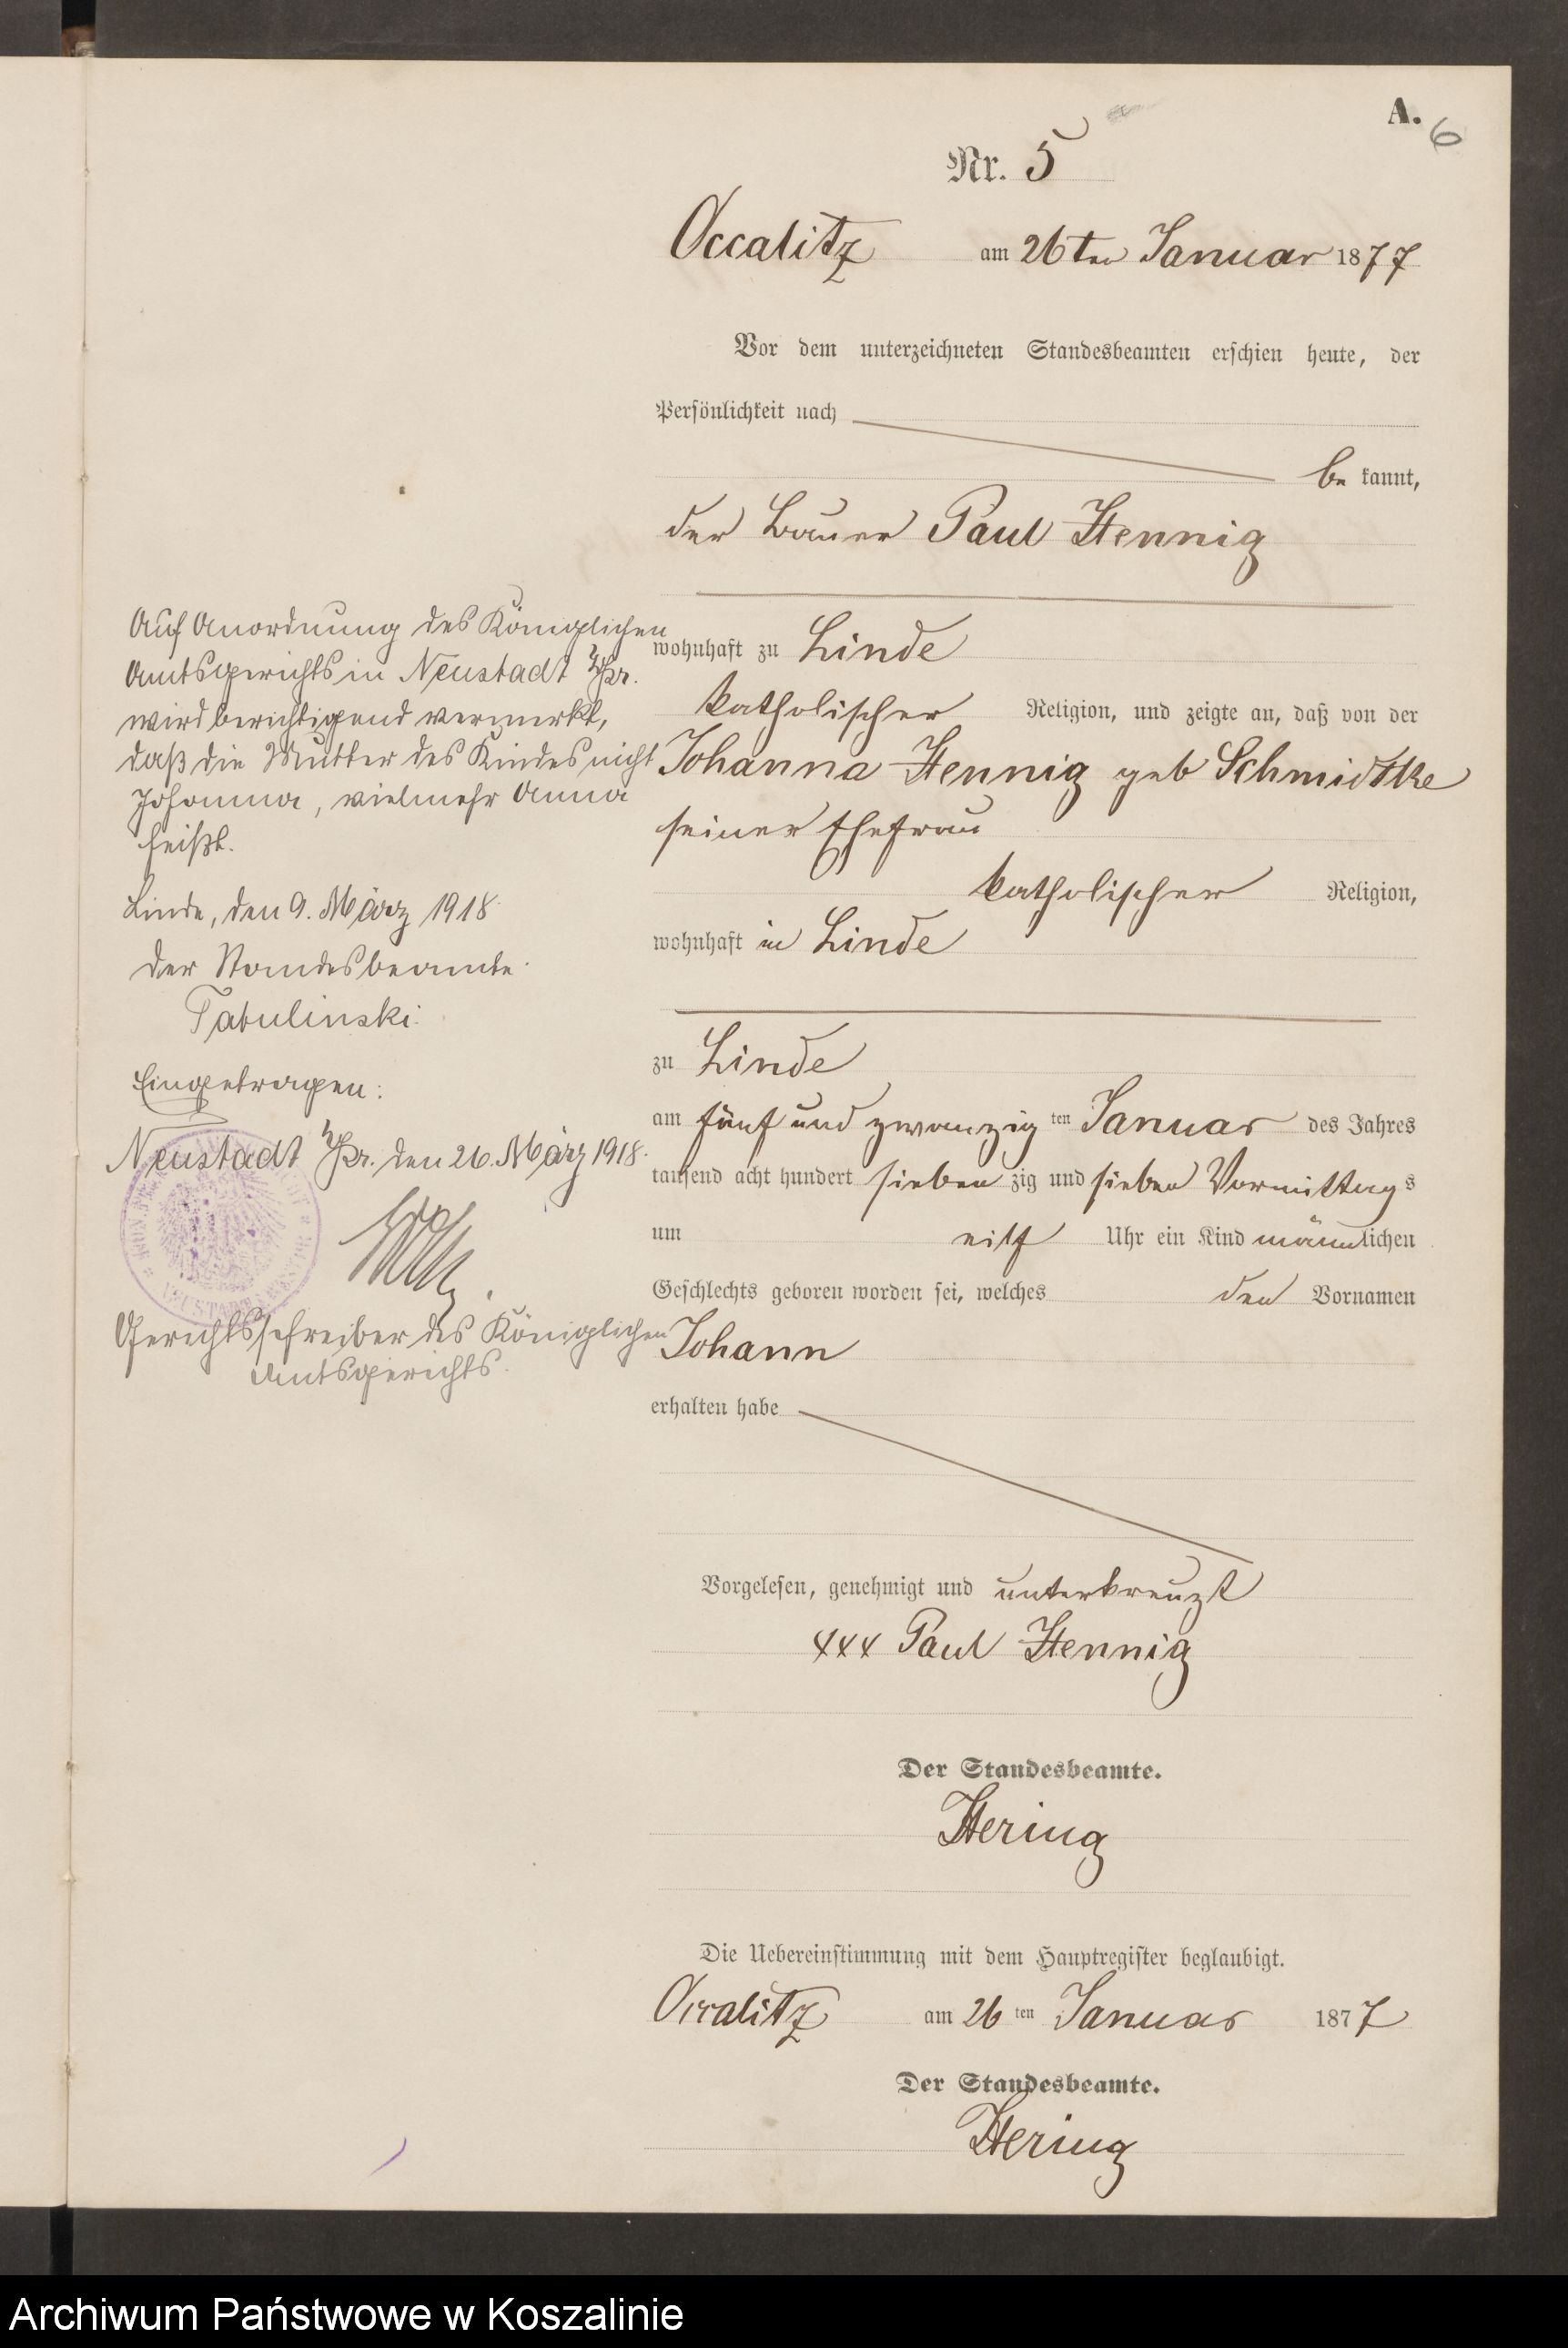 A.
6
Nr. 5
Occalitz am 26ten Januar 1877
Vor dem unterzeichneten Standesbeamten erschien heute, der
Persönlichkeit nach
be kannt,
der Bauer Paul Hennig
wohnhaft zu Linde
katholischer Religion, und zeigte an, daß von der
Johanna Hennig geb Schmidtke
seiner Ehefrau
katholischer Religion,
wohnhaft in Linde
zu Linde
am fünf und zwanzig ten Januar des Jahres
tausend acht hundert sieben zig und sieben Vormittag s
um eilf Uhr ein Kind männlichen
Geschlechts geboren worden sei, welches den Vornamen
Johann
erhalten habe
Vorgelesen, genehmigt und unterkreuzt
+++ Paul Hennig
Der Standesbeamte.
Hering
Die Uebereinstimmung mit dem Hauptregister beglaubigt.
Occalitz am 26 ten Januar 1877
Der Standesbeamte.
Hering
Auf Anordnung des Königlichen
Amtsgerichts in Neustadt Wpr.
wird berichtigend vermerkt,
daß die Mutter des Kindes nicht
Johanna, vielmehr Anna
heißt.
Linde, den 9. März 1918
Der Standesbeamte.
Tabulinski.
Eingetragen:
Neustadt Wpr. den 26. März 1918.
Gerichtsschreiber des Königlichen
Amtsgerichts.
Archiwum Państwowe w Koszalinie